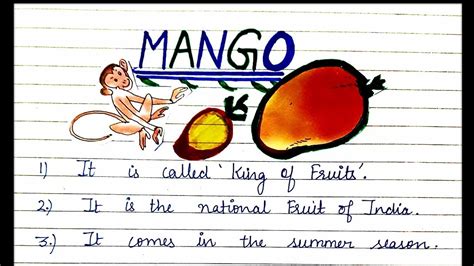 MANGO
1) It is called 'King of Fruits'.
2.) It is the national Fruit of India.
3.) It comes in the summer season.